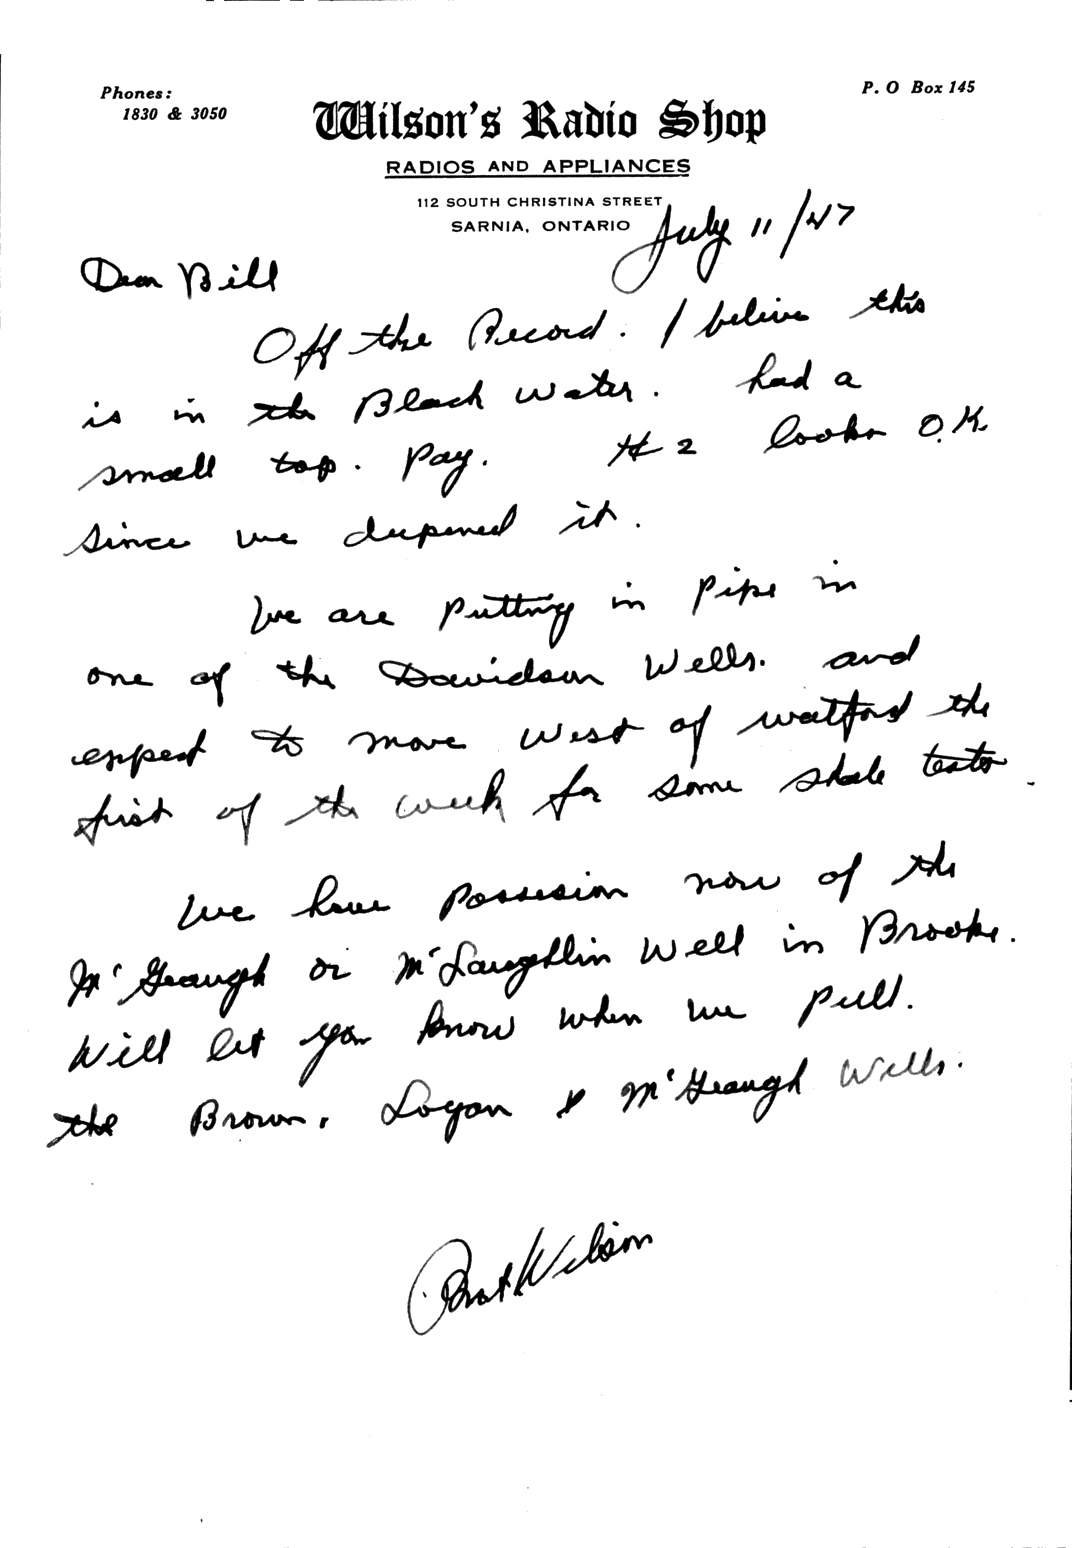 Phones:
1830 & 3050
P. O Box 145
Wilson's Radio Shop
RADIOS AND APPLIANCES
112 SOUTH CHRISTINA STREET
SARNIA, ONTARIO
July 11/47
Dear Bill
Off the Record. I belive this
is in the Black Water. had a
small top. pay. # 2 looks O.K.
since we deepened it.
We are putting in pipe in
one of the Davidson Wells. and
expect to move West of watford the
first of the week for some shale tests.
We have possesion now of the
McGeaugh or McLaughlin Well in Brooke.
Will let you know when we pull.
the Brown, Logan & McGeaugh Wells.
Wilson